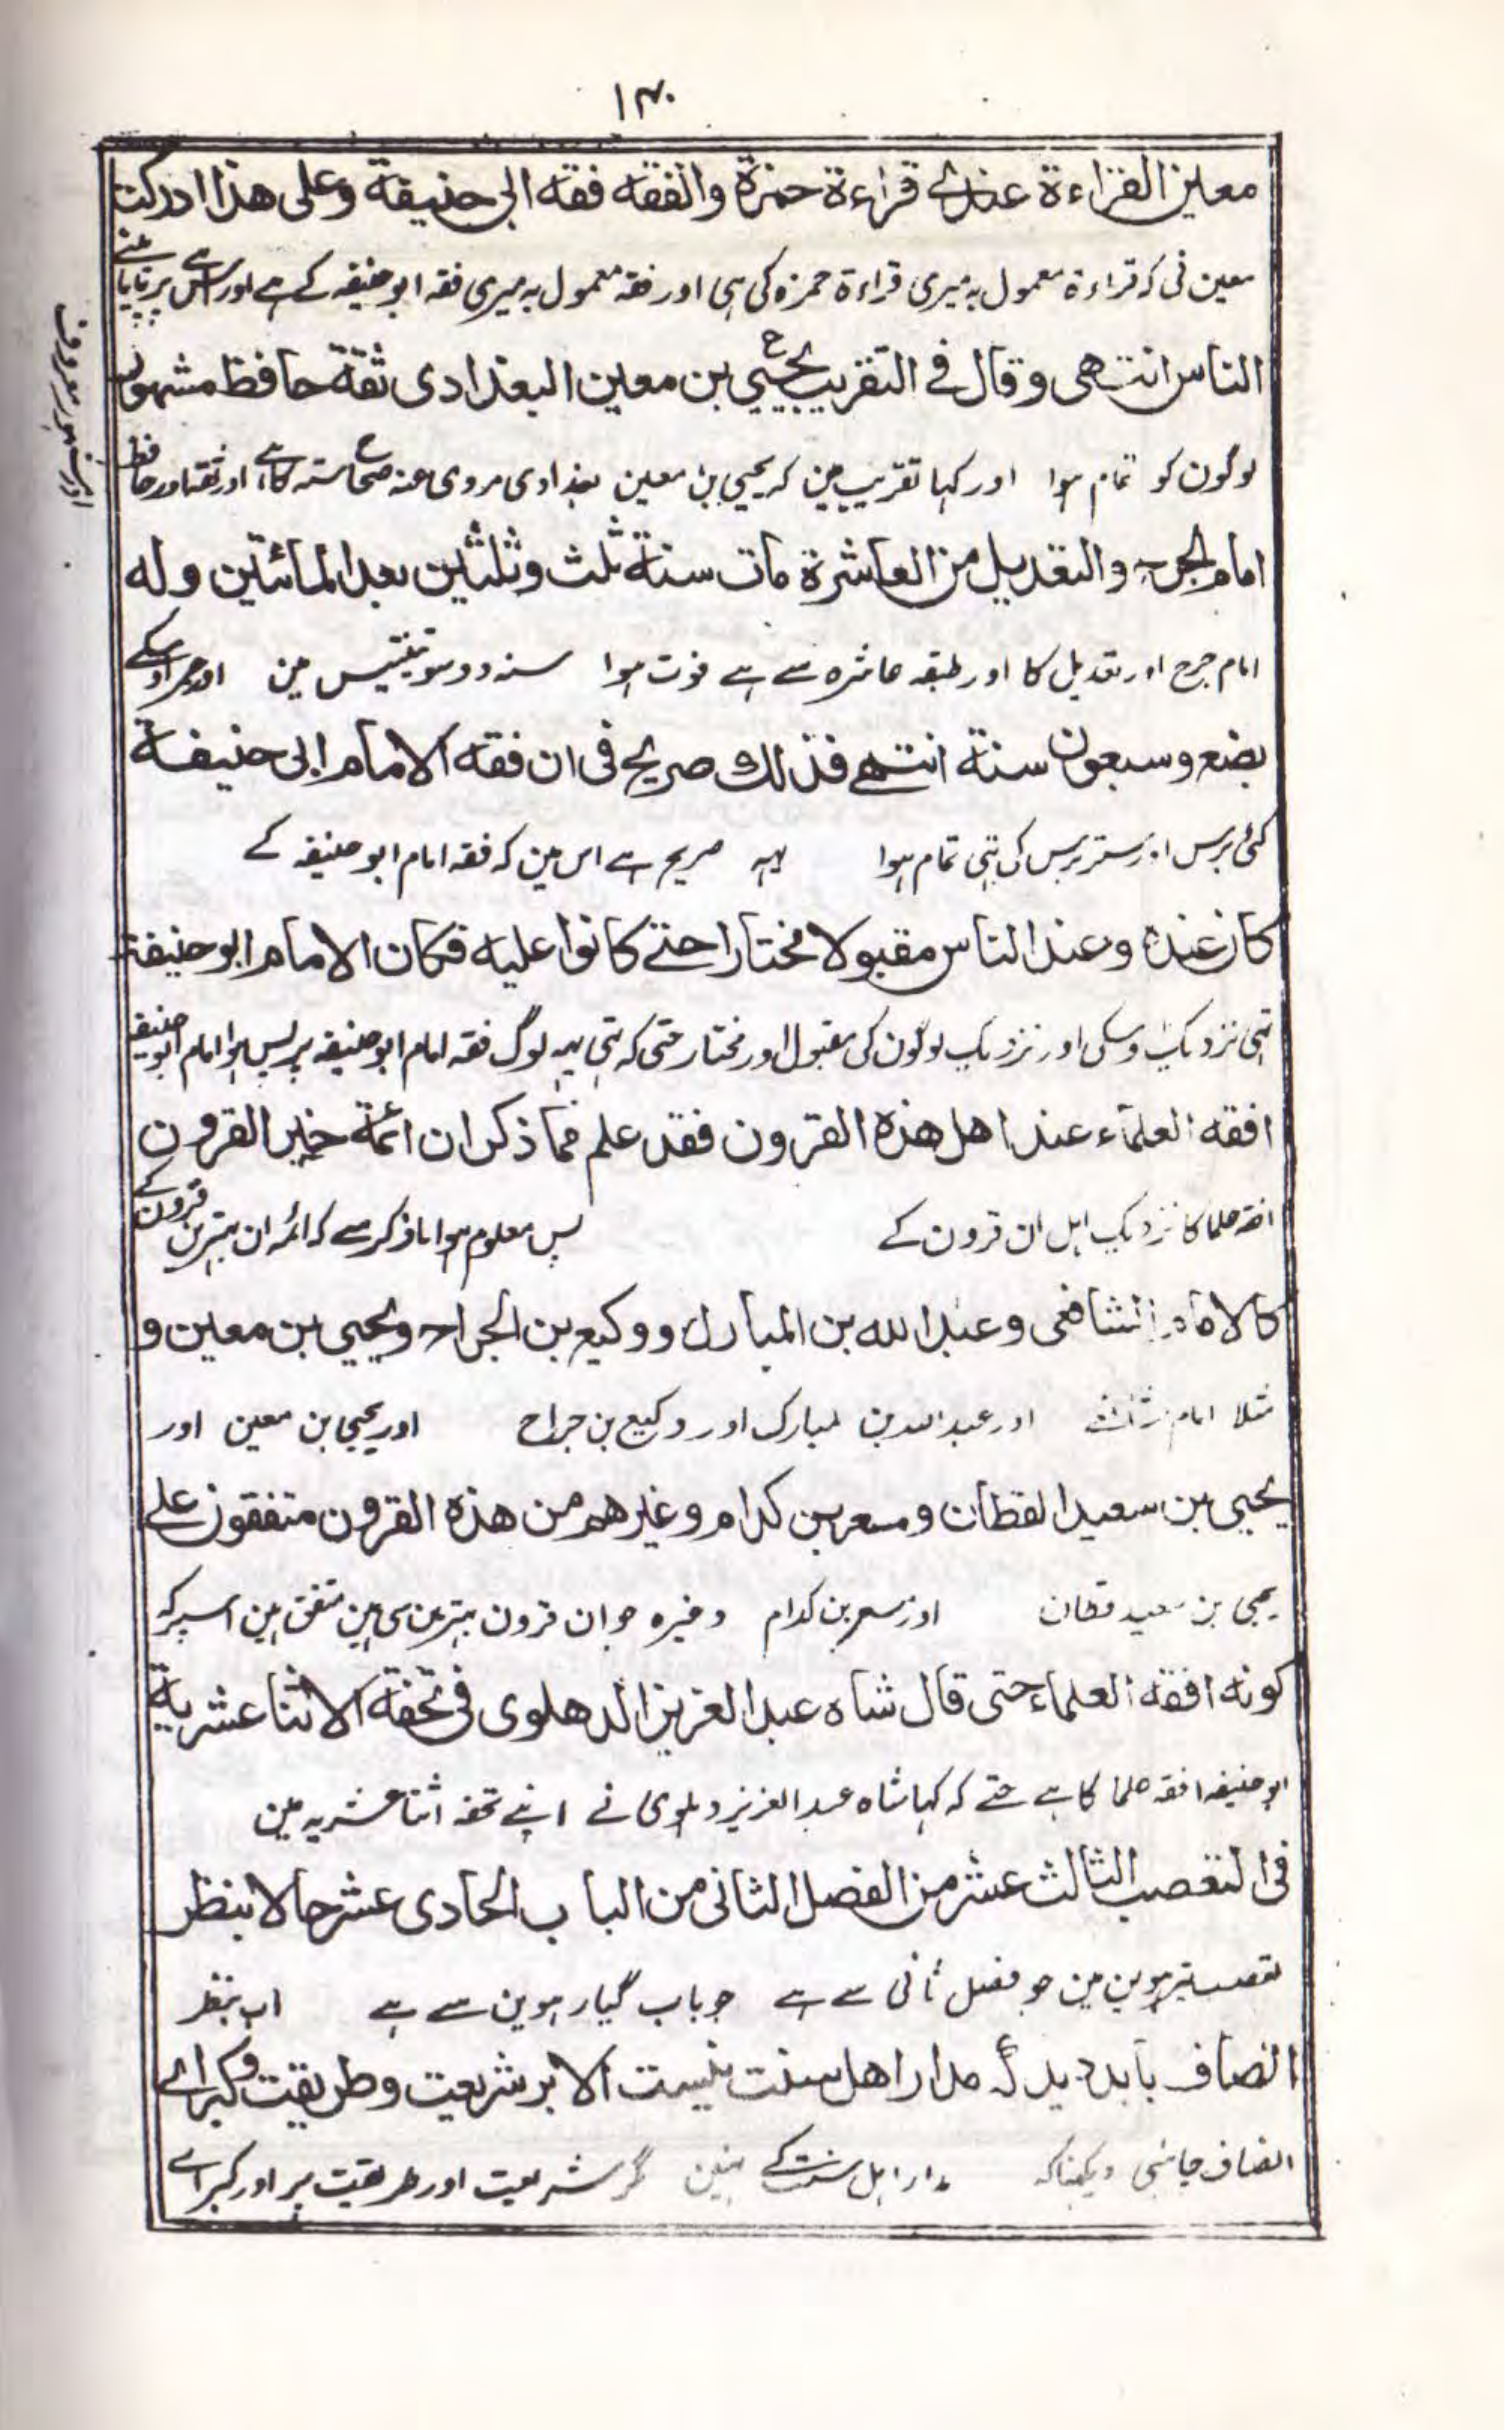 ۱۴۰
معين القراءة عندى قراءة حمزة والفقه فقه ابى حنيفة وعلى هذا ادركت
معین نی کہ قراءۃ معمول بہ میری قراءۃ حمزہ کی ہی اور فقہ معمول بہ میری فقہ ابو حنیفہ کے ہے اور اسی پر پایا مینے
الناس انتهى وقال فے التقريب يحيي بن معين البغدادى ثقة حافظ مشهور
لوگون کو تمام ہوا اور کہا تقریب مین کہ یحیی بن معین بغدادی مروی عنہ صحاح ستہ کا ہے اور ثقہ اور حافظ
اور مشہور معروف
امام الجرح والتعديل من العاشرة مات سنة ثلث وثلثين بعد المائتين وله
امام جرح اور تعدیل کا اور طبقہ عاشرہ سے ہے فوت ہوا سنہ دو سو تینتیس مین اور عمر اوسکے
بضع وسبعون سنة انتهے فذلك صريح فى ان فقه الامام ابى حنيفة
کئی برس اور ستر برس کی تہی تمام ہوا یہہ صریح ہے اس مین کہ فقہ امام ابو حنیفہ کے
كان عنده وعند الناس مقبولا مختارا حتے كانوا عليه فكان الامام ابو حنيفة
تہی نزدیک اوسکی اور نزدیک لوگون کی مقبول اور مختار حتی کہ تہی یہہ لوگ فقہ امام ابو حنیفہ پر پس ہوا امام ابو حنیفہ
افقه العلمآء عند اهل هذه القرون فقد علم مما ذكر ان ائمة خير القرون
افقہ علما کا نزدیک اہل ان قرون کے پس معلوم ہوا ماذکر سے کہ ائمہ ان بہترین قرون کے
كالامام الشافعى وعبد الله بن المبارك ووكيع بن الجراح ويحيي بن معين و
مثلا امام شافعے اور عبد اللہ بن مبارک اور وکیع بن جراح اور یحیی بن معین اور
يحيى بن سعيد القطان ومسعر بن كدام وغيرهم من هذه القرون متفقون علے
یحیی بن سعید قطان اور مسعر بن کدام وغیرہ جو ان قرون بہترین سی ہین متفق ہین اسپر کہ
كونه افقه العلماء حتى قال شاه عبد العزيز الدهلوى فى تحفة الاثنا عشرية
ابو حنیفہ افقہ علما کا ہے حتے کہ کہا شاہ عبد العزیز دہلوی نے اپنے تحفہ اثنا عشریہ مین
فى التعصب الثالث عشر من الفصل الثانى من الباب الحادى عشر حالا بنظر
تعصب تیرہوین مین جو فصل ثانی سے ہے جو باب گیارہوین سے ہے اب بنظر
انصاف بايد ديد كه مدار اهل سنت نيست الا بر شريعت وطريقت وكبراے
انصاف چاہئی دیکہنا کہ مدار اہل سنت کے نہین مگر شریعت اور طریقت پر اور کبراے